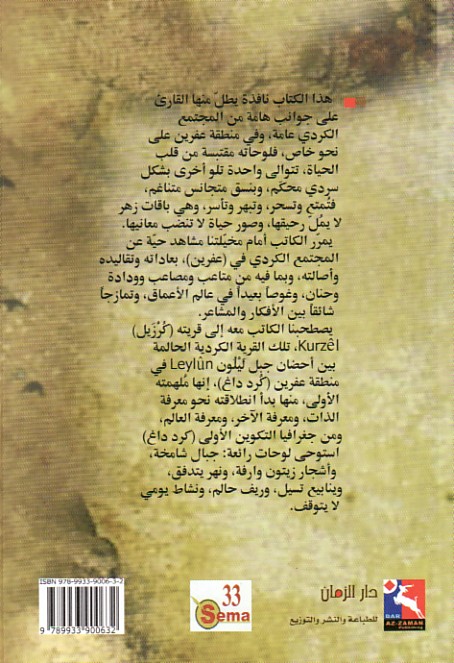 هذا الكتاب نافذة يطلّ منها القارئ
على جوانب هامة من المجتمع
الكردي عامة، وفي منطقة عفرين على
نحو خاص، فلوحاته مقتبسة من قلب
الحياة، تتوالى واحدة تلو أخرى بشكل
سردي محكم، وبنسق متجانس متناغم،
فتُمتع وتسحر، وتبهر وتأسر، وهي باقات زهر
لا يمُلّ رحيقها، وصور حياة لا تنضب معانيها.
يمرّر الكاتب أمام مخيّلتنا مشاهد حيّة عن
المجتمع الكردي في (عفرين)، بعاداته وتقاليده
وأصالته، وبما فيه من متاعب ومصاعب وودادة
وحنان، وغوصاً بعيداً في عالم الأعماق، وتمازجاً
شائقاً بين الأفكار والمشاعر.
يصطحبنا الكاتب معه إلى قريته (كُرْزَيل)
Kurzêl، تلك القرية الكردية الحالمة
بين أحضان جبل لَيْلُون Leylûn في
منطقة عفرين (كُرد داغ)، إنها مُلهمته
الأولى، منها بدأ انطلاقته نحو معرفة
الذات، ومعرفة الآخر، ومعرفة العالم،
ومن جغرافيا التكوين الأولى (كرد داغ)
استوحى لوحات رائعة: جبال شامخة،
وأشجار زيتون وارفة، ونهر يتدفق،
وينابيع تسيل، وريف حالم، ونشاط يومي
لا يتوقف.
ISBN 978-9933-9006-3-2
9 789933 900632
33
Sema
دار الزمان
للطباعة والنشر والتوزيع
DAR
AZ-ZAMAN